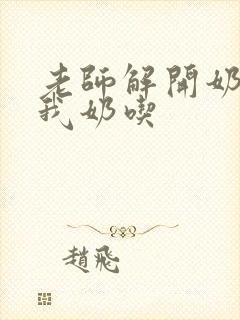 老師解開奶
我奶喫
趙飛